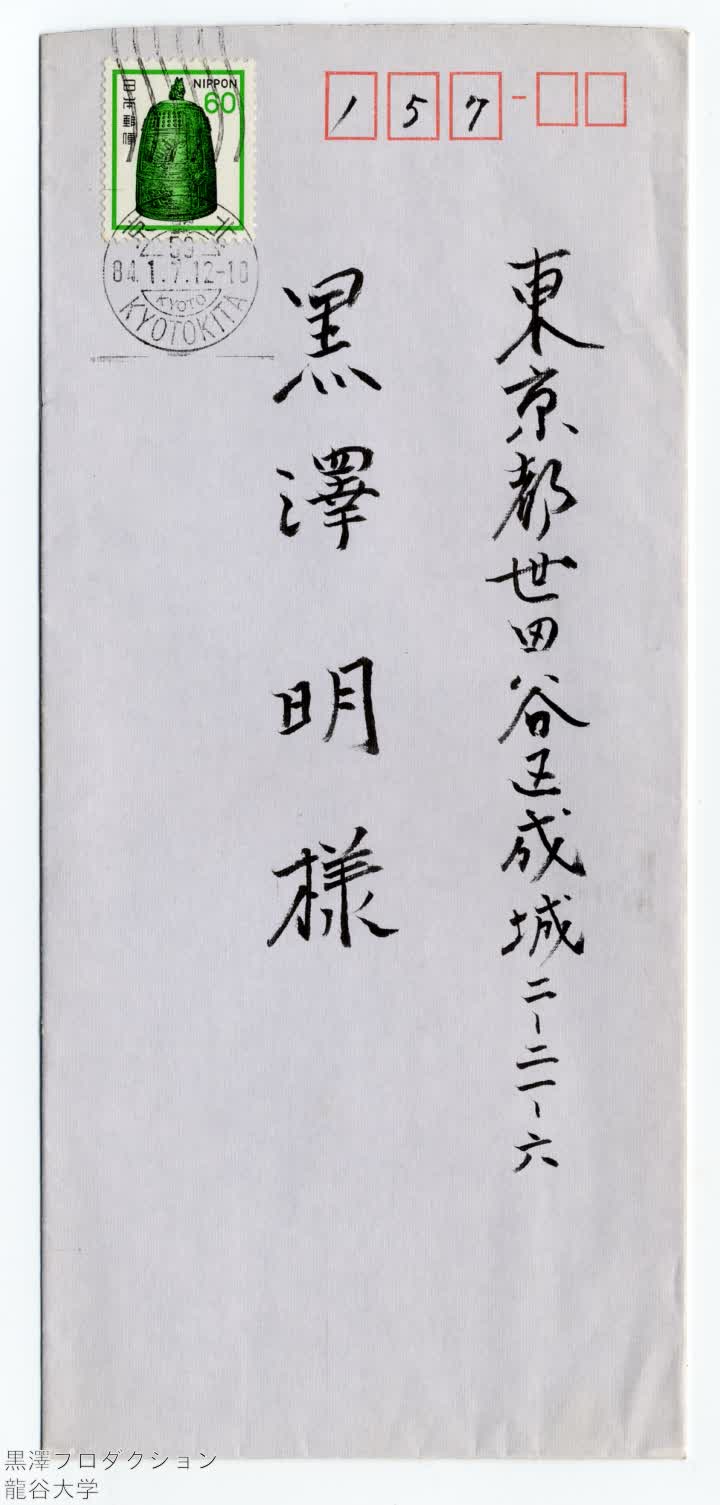 日本郵便
NIPPON
60
157
84.1.7.12-18
KYOTO
KYOTOKITA
東京都世田谷区成城二-二一-六
黒澤明様
黒澤プロダクション
龍谷大学